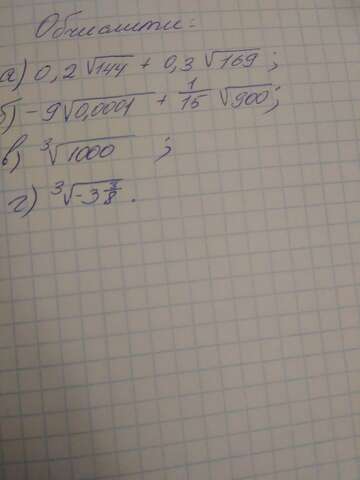 Обчислити:
а) 0,2√144 + 0,3√169 ;
б) -9√0,0001 + 1/15 √900;
в) ³√1000 ;
г) ³√-3 3/8 .